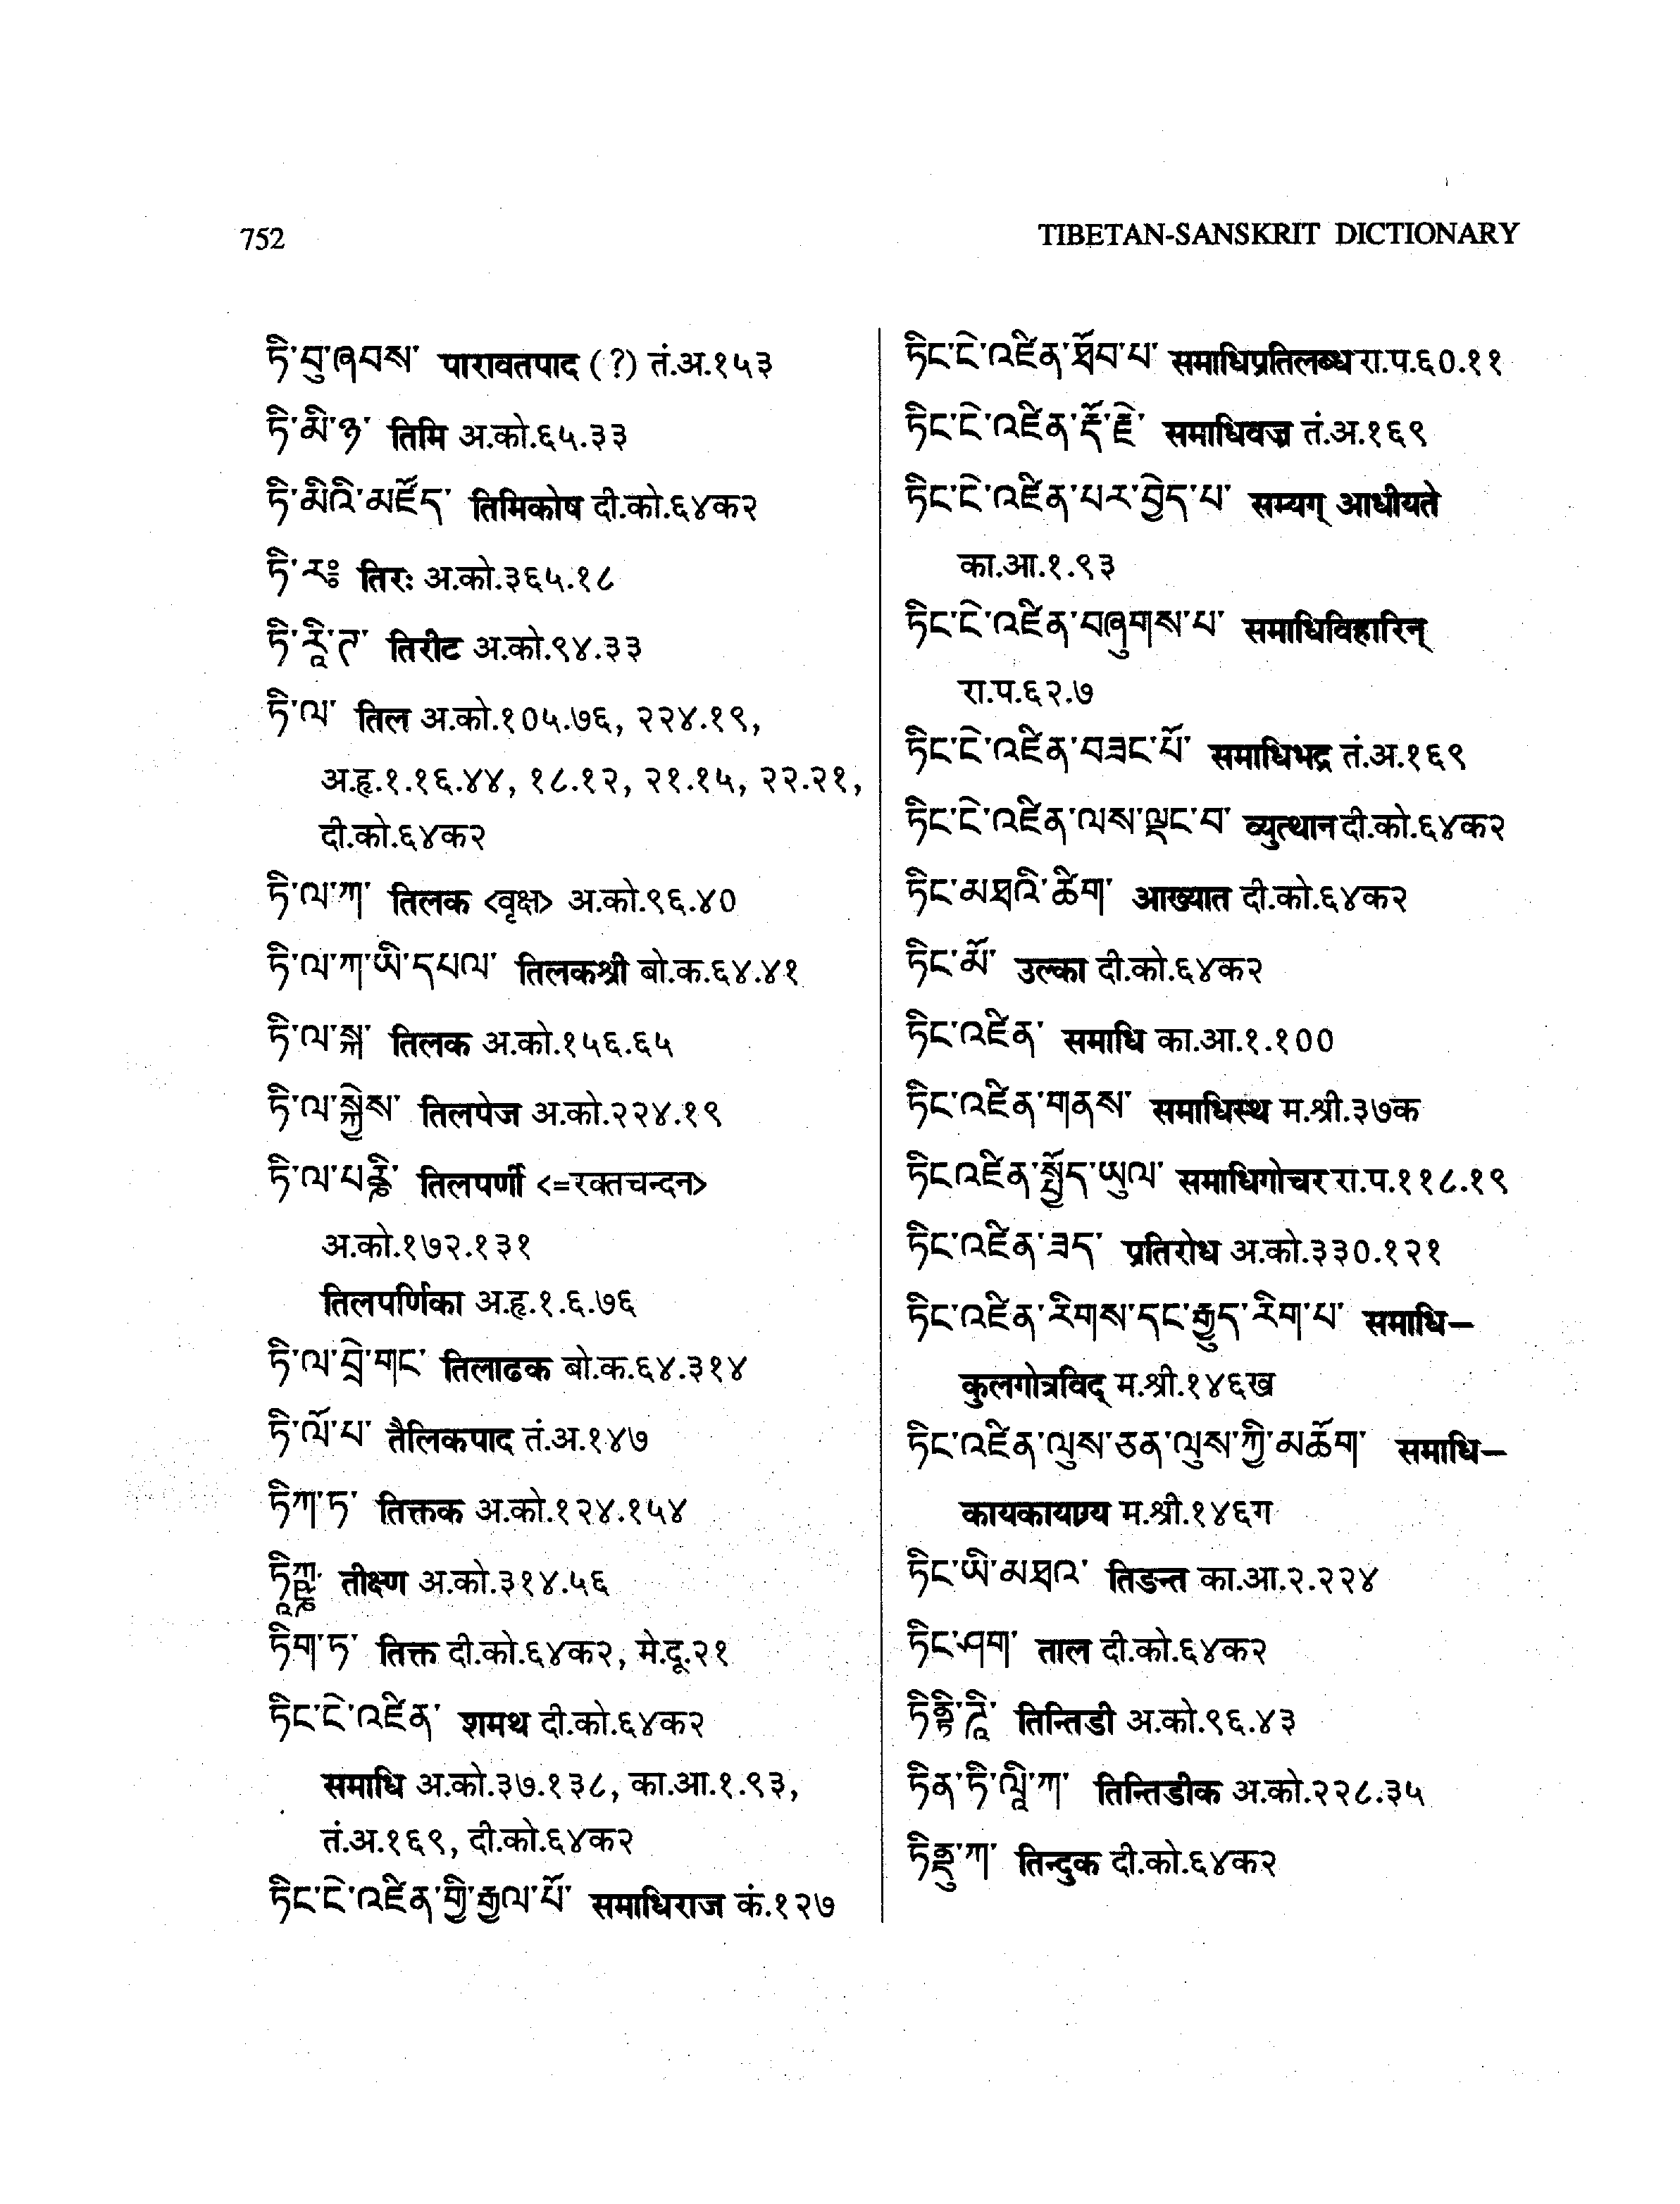 752
TIBETAN-SANSKRIT DICTIONARY
ཏི་བུ་ཞབས་ पारावतपाद (?) तं.अ.१५३
ཏི་མི་ཉ་ तिमि अ.को.६५.३३
ཏི་མིའི་མཛོད་ तिमिकोष दी.को.६४क२
ཏི་རཿ तिरः अ.को.३६५.१८
ཏི་རཱི་ཊ་ तिरीट अ.को.९४.३३
ཏི་ལ་ तिल अ.को.१०५.७६, २२४.१९,
अ.हृ.१.१६.४४, १८.१२, २१.१५, २२.२१,
दी.को.६४क२
ཏི་ལ་ཀ་ तिलक <वृक्ष> अ.को.९६.४०
ཏི་ལ་ཀ་ཡི་དཔལ་ तिलकश्री बो.क.६४.४१
ཏི་ལ་སྐ་ तिलक अ.को.१५६.६५
ཏི་ལ་སྐྱེས་ तिलपेज अ.को.२२४.१९
ཏི་ལ་པརྞི་ तिलपर्णी <=रक्तचन्दन>
अ.को.१७२.१३१
तिलपर्णिका अ.हृ.१.६.७६
ཏི་ལ་བྲེ་གང་ तिलाढक बो.क.६४.३१४
ཏི་ལོ་པ་ तैलिकपाद तं.अ.१४७
ཏིཀ་ཏ་ तिक्तक अ.को.१२४.१५४
तीक्ष्ण अ.को.३१४.५६
ཏིག་ཏ་ तिक्त दी.को.६४क२, मे.दू.२१
ཏིང་ངེ་འཛིན་ शमथ दी.को.६४क२
समाधि अ.को.३७.१३८, का.आ.१.९३,
तं.अ.१६९, दी.को.६४क२
ཏིང་ངེ་འཛིན་གྱི་རྒྱལ་པོ་ समाधिराज कं.१२७
ཏིང་ངེ་འཛིན་ཐོབ་པ་ समाधिप्रतिलब्ध रा.प.६०.११
ཏིང་ངེ་འཛིན་རྡོ་རྗེ་ समाधिवज्र तं.अ.१६९
ཏིང་ངེ་འཛིན་པར་བྱེད་པ་ सम्यग् आधीयते
का.आ.१.९३
ཏིང་ངེ་འཛིན་བཞུགས་པ་ समाधिविहारिन्
रा.प.६२.७
ཏིང་ངེ་འཛིན་བཟང་པོ་ समाधिभद्र तं.अ.१६९
ཏིང་ངེ་འཛིན་ལས་ལྡང་བ་ व्युत्थान दी.को.६४क२
ཏིང་མཐའི་ཚིག་ आख्यात दी.को.६४क२
ཏིང་མོ་ उल्का दी.को.६४क२
ཏིང་འཛིན་ समाधि का.आ.१.१००
ཏིང་འཛིན་གནས་ समाधिस्थ म.श्री.३७क
ཏིང་འཛིན་སྤྱོད་ཡུལ་ समाधिगोचर रा.प.११८.१९
ཏིང་འཛིན་ཟད་ प्रतिरोध अ.को.३३०.१२१
ཏིང་འཛིན་རིགས་དང་རྒྱུད་རིག་པ་ समाधि–
कुलगोत्रविद् म.श्री.१४६ख
ཏིང་འཛིན་ལུས་ཅན་ལུས་ཀྱི་མཆོག་ समाधि–
कायकायाग्र्य म.श्री.१४६ग
ཏིང་ཡི་མཐའ་ तिङन्त का.आ.२.२२४
ཏིང་ཤག་ ताल दी.को.६४क२
ཏིནྟི་ཌཱི་ तिन्तिडी अ.को.९६.४३
ཏིན་ཏི་ལཱི་ཀ་ तिन्तिडीक अ.को.२२८.३५
ཏིནྡུ་ཀ་ तिन्दुक दी.को.६४क२